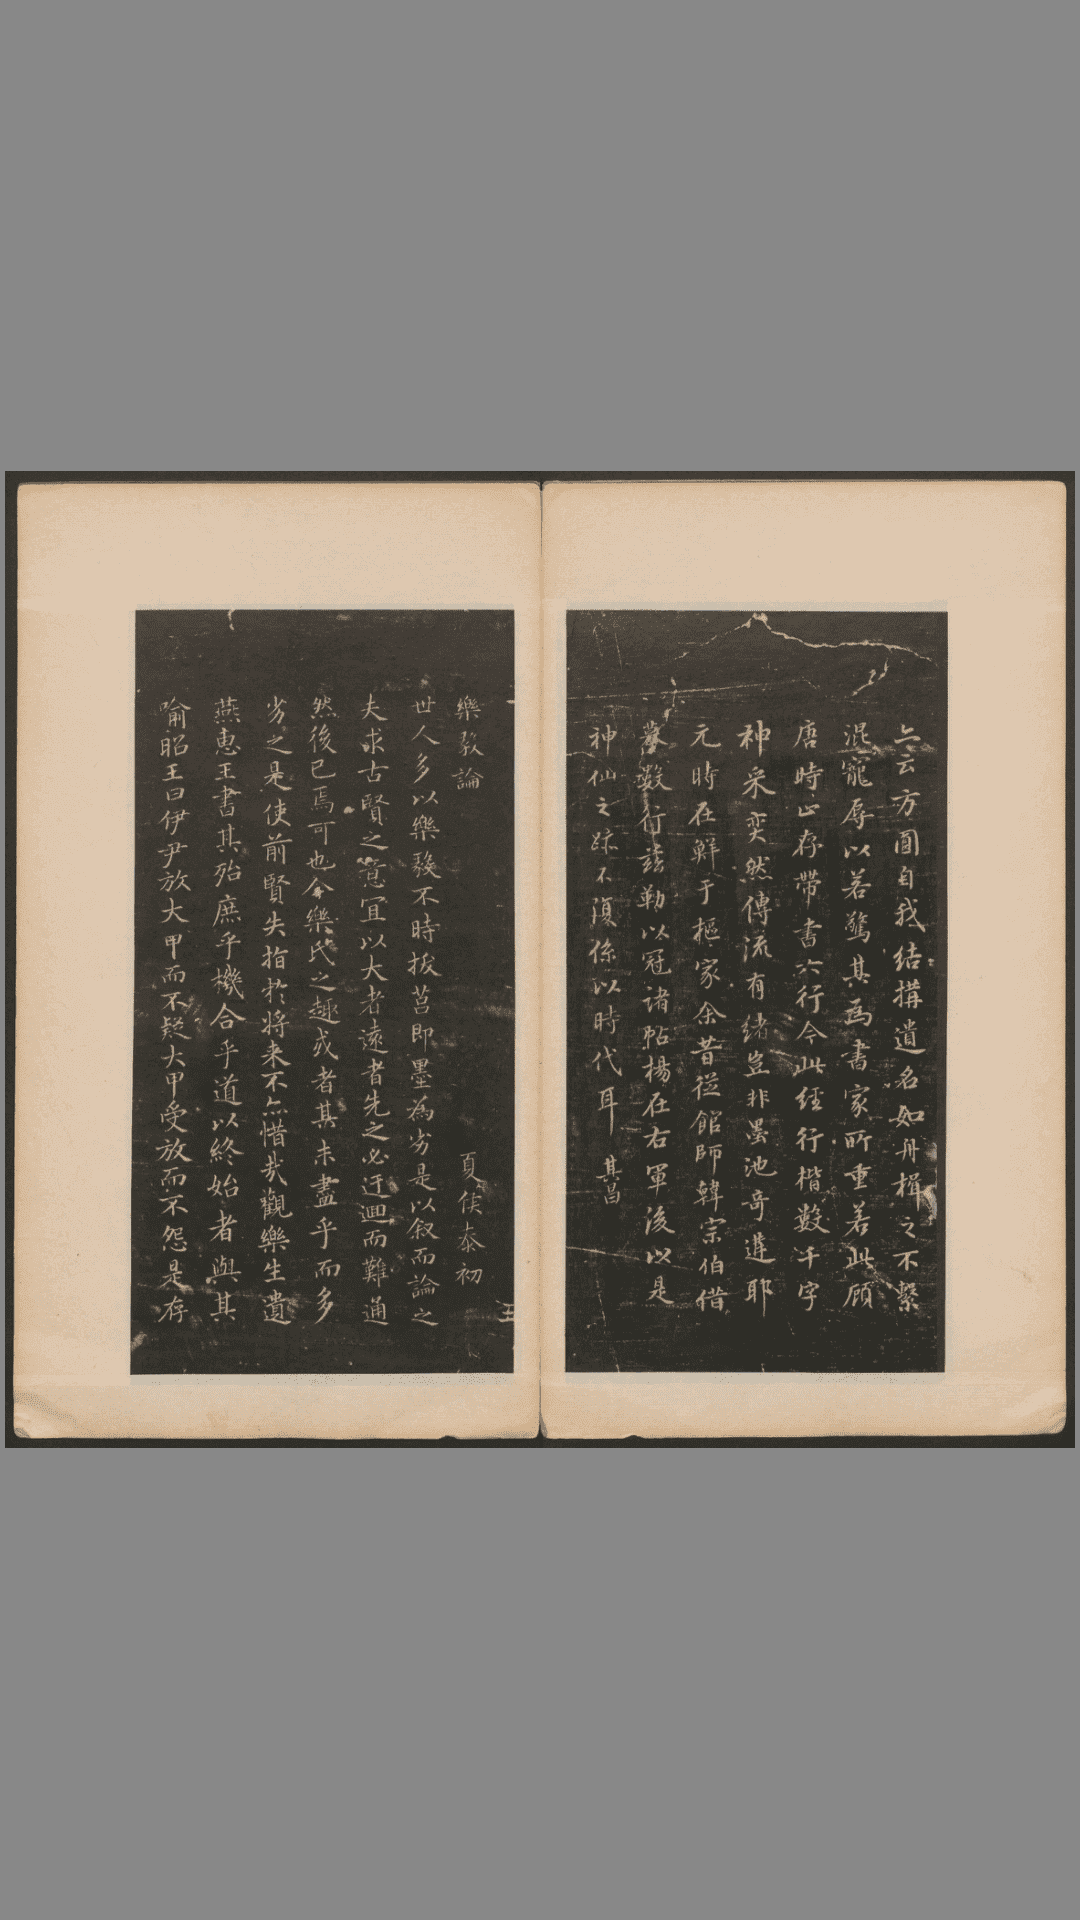 亠云方圓自我結搆遺名如舟楫之不繫
混寵辱以若驚其為書家所重若此顧
唐時止存帶書六行今此經行楷數千字
神采奕然傳流有緒豈非墨池奇遘耶
元時在鮮于樞家余昔從館師韓宗伯借
摹數行玆勒以冠諸帖楊在右軍後以是
神仙之跡不復係以時代耳 其昌
五
樂毅論 夏侯泰初
世人多以樂毅不時拔莒即墨為劣是以叙而論之
夫求古賢之意宜以大者遠者先之必迂迴而難通
然後已焉可也今樂氏之趣或者其未盡乎而多
劣之是使前賢失指於將来不亦惜哉觀樂生遺
燕惠王書其殆庶乎機合乎道以終始者與其
喻昭王曰伊尹放大甲而不疑大甲受放而不怨是存